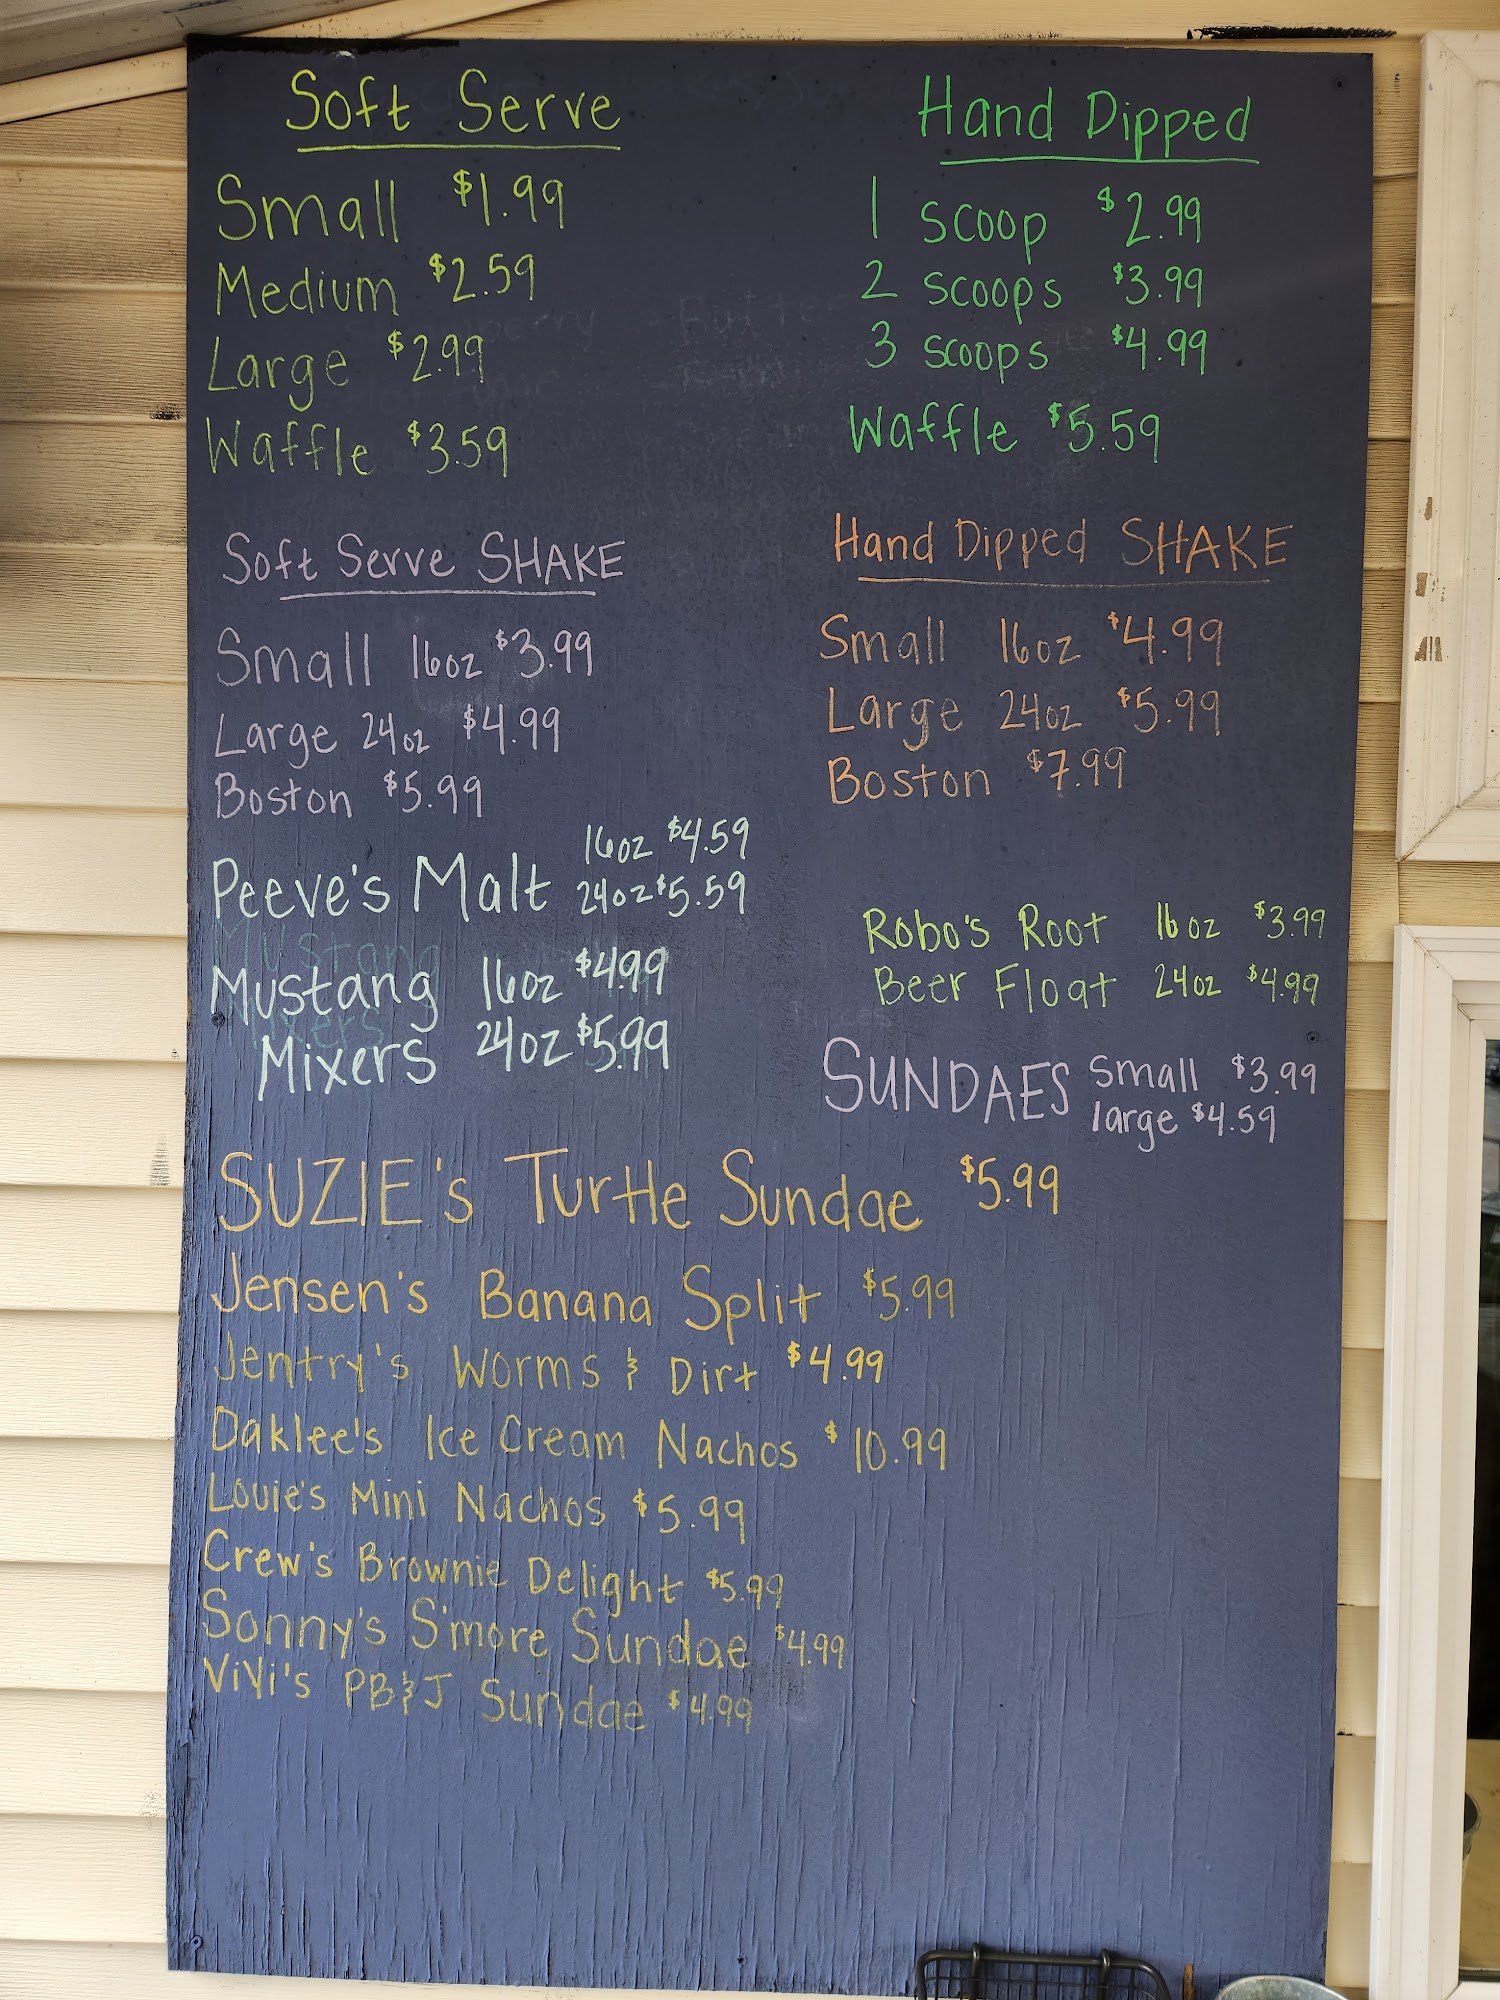 Soft Serve
Small $1.99
Medium $2.59
Large $2.99
Waffle $3.59
Hand Dipped
1 scoop $2.99
2 scoops $3.99
3 scoops $4.99
Waffle $5.59
Soft Serve SHAKE
Small 16oz $3.99
Large 24oz $4.99
Boston $5.99
Hand Dipped SHAKE
Small 16oz $4.99
Large 24oz $5.99
Boston $7.99
Peeve's Malt 16oz $4.59
24oz $5.59
Mustang 16oz $4.99
Mixers 24oz $5.99
Robo's Root 16oz $3.99
Beer Float 24oz $4.99
SUNDAES small $3.99
large $4.59
SUZIE's Turtle Sundae $5.99
Jensen's Banana Split $5.99
Jentry's Worms & Dirt $4.99
Daklee's Ice Cream Nachos $10.99
Louie's Mini Nachos $5.99
Crew's Brownie Delight $5.99
Sonny's S'more Sundae $4.99
ViVi's PB&J Sundae $4.99